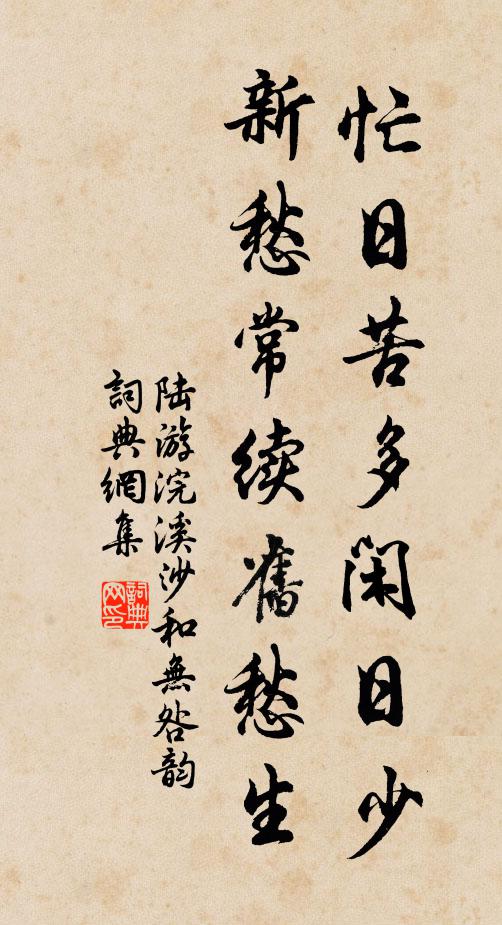 忙日苦多闲日少
新愁常续舊愁生
陆游浣溪沙和無咎韵
詞典網集
詞典网印